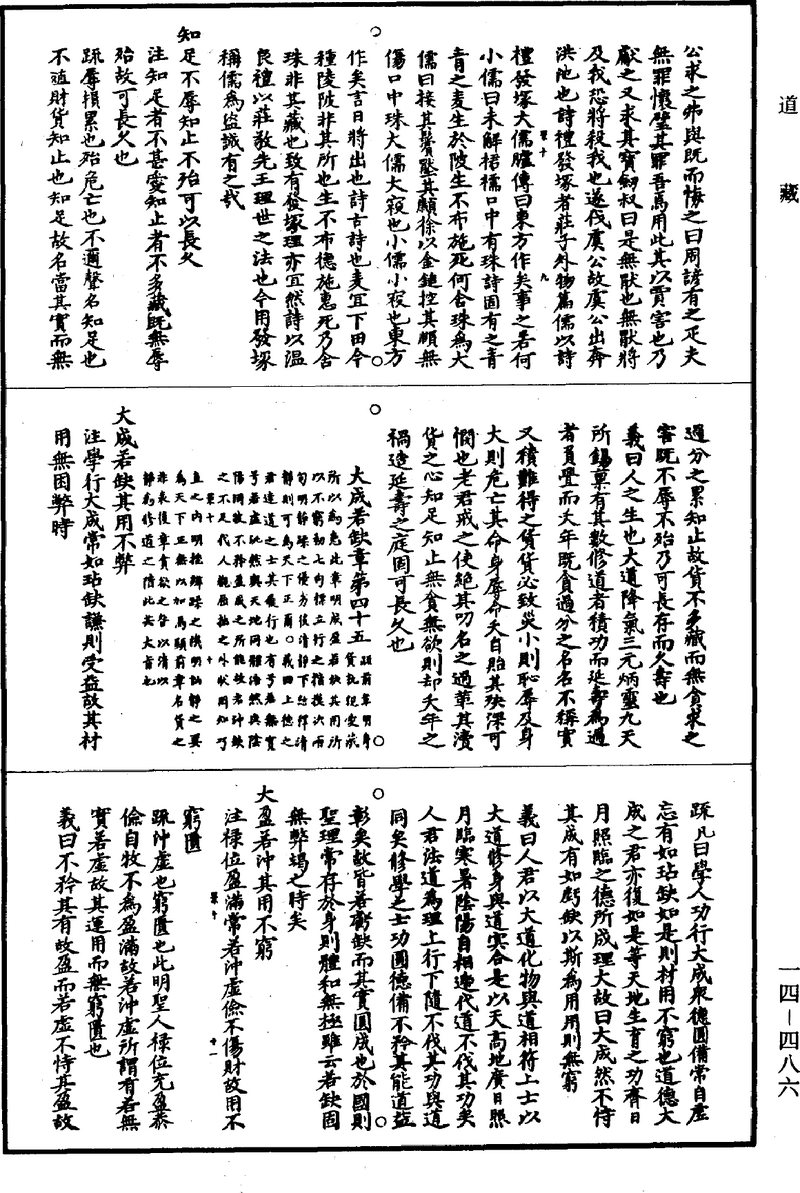 道藏
公求之弗與既而悔之曰周諺有之疋夫
無罪懷璧其罪吾焉用此其以賈害也乃
獻之又求其寶劒叔曰是無猒也無猒將
及我恐將殺我也遂伐虞公故虞公出奔
洪池也詩禮發塚者莊子外物篇儒以詩
禮發塚大儒臚傳曰東方作矣事之若何
小儒曰未解裙襦口中有珠詩固有之青
青之麦生於陵陂生不布施死何含珠為大
儒曰接其鬢壓其顪徐以金鎚控其頤無
傷口中珠大儒大寇也小儒小寇也東方
作矣言日將出也詩古詩也麦宜下田今
種陵陂非其所也生不布德施惠死乃含
珠非其藏也致有發塚理亦宜然詩以温
良禮以莊敬先王理世之法也今用發塚
稱儒為盗誠有之哉
知足不辱知止不殆可以長久
注知足者不甚愛知止者不多藏既無辱
殆故可長久也
疏辱損累也殆危亡也不邇聲名知足也
不殖財貨知止也知足故名當其實而無
過分之累知止故貨不多藏而無貪求之
害既不辱不殆乃可長存而久壽也
義曰人之生也大道降氣三元炳靈九天
所錫稟有其數修道者積功而延壽為過
者員舋而夭年既貪過分之名名不稱實
又積難得之貨貨必致災小則恥辱及身
大則危亡其命身辱命夭自貽其殃深可
憫也老君戒之使絶其叨名之過革其瀆
貨之心知足知止無貪無欲則却夭年之
禍造延壽之庭固可長久也
大成若缺章第四十五
大成若缺其用不弊
注學行大成常如玷缺謙則受益故其材
用無困弊時
疏凡曰學人功行大成衆德圓備常自虚
忘有如玷缺如是則材用不窮也道德大
成之君亦復如是等天地生育之功齊日
月照臨之德所成理大故曰大成然不恃
其成有如虧缺以斯為用用則無窮
義曰人君以大道化物與道相符上士以
大道修身與道冥合是以天高地廣日照
月臨寒暑陰陽自相運代道不伐其功矣
人君法道為理上行下隨不伐其功與道
同矣修學之士功圓德備不矜其能道益
彰矣故皆若虧缺而其實圓成也於國則
聖理常存於身則體和無極雖云若缺固
無弊竭之時矣
大盈若沖其用不窮
注禄位盈滿常若沖虚儉不傷財故用不
窮匱
疏沖虚也窮匱也此明聖人禄位充盈恭
儉自牧不為盈滿故若沖虚所謂有若無
實若虚故其運用而無窮匱也
義曰不矜其有故盈而若虚不恃其盈故
一四－四八六